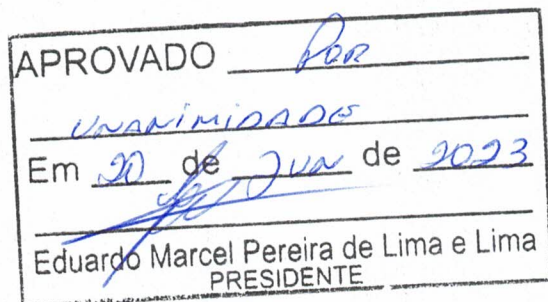 APROVADO Por
UNANIMIDADE
Em 20 de Jun de 2023
Eduardo Marcel Pereira de Lima e Lima
PRESIDENTE